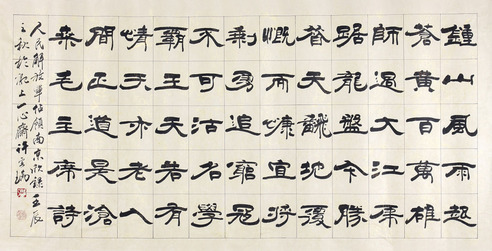 鍾山風雨起
蒼黃百萬雄
師過大江虎
踞龍盤今勝
昔天翻地覆
慨而慷宜將
剩勇追窮寇
不可沽名學
霸王天若有
情天亦老人
間正道是滄
桑毛主席詩
人民解放軍佔領南京 壬辰
之秋於滬上一心齋許